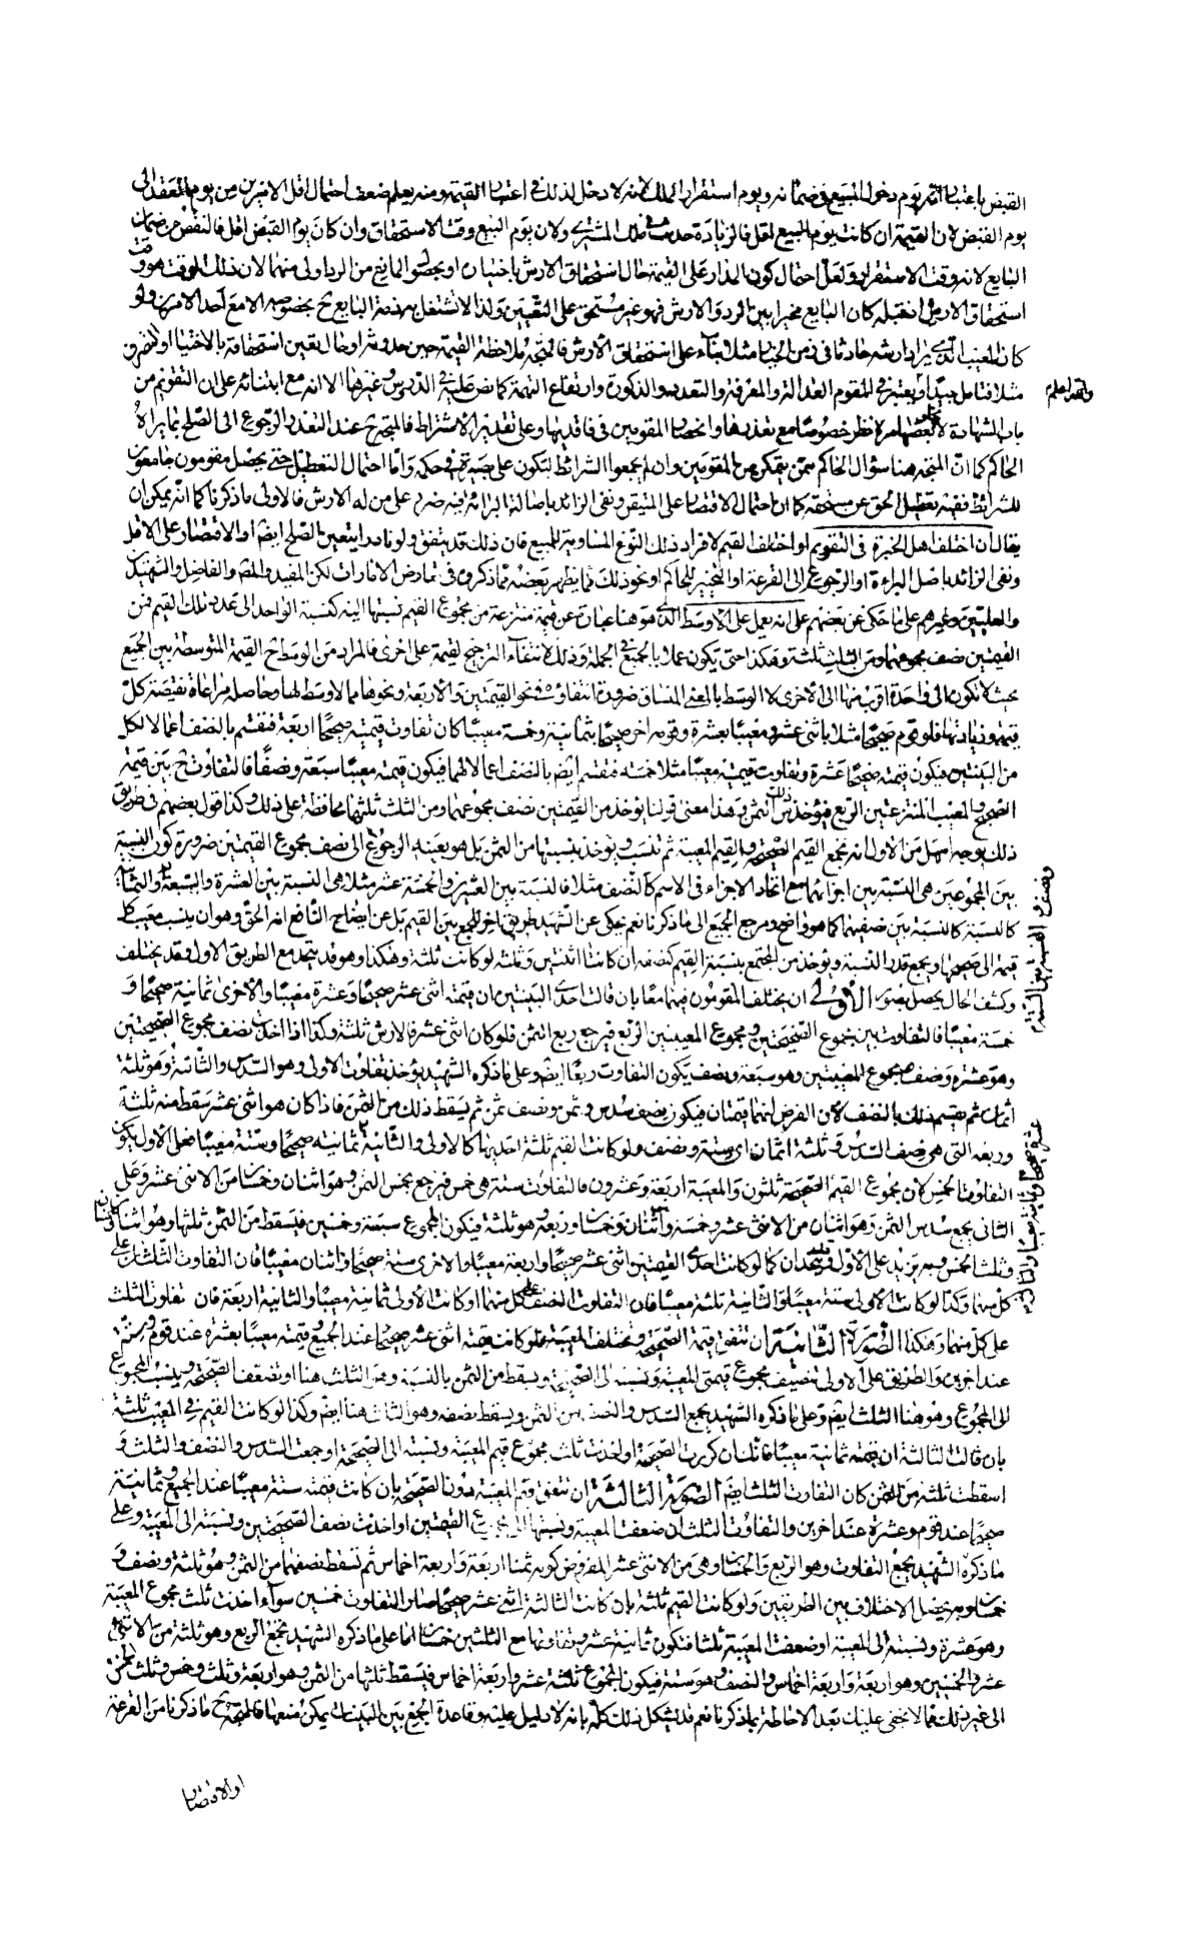 القبض باعتبار انه يوم دخول المبيع في ضمانه ويوم استقرار الملك لانه لا دخل لذلك في اعتبار القيمة ومنه يعلم ضعف احتمال اقل الامرين من يوم العقد الى
يوم القبض لان القيمة ان كانت يوم المبيع اقل فالزيادة حدثت في ملك المشتري ولان يوم البيع وقت الاستحقاق وان كان يوم القبض اقل فالنقص من ضمان
البايع لانه وقت الاستقرار ولعل احتمال كون المدار على القيمة حال استحقاق الارش باختياره او بحصول المانع من الرد اولى منهما لان ذلك الوقت هو وقت
استحقاق الارش اذ قبله كان البايع مخيرا بين الرد والارش فهو غير مستحق على التعيين ولذا لا تشتغل به ذمة البايع ح بخصوصه الا مع احد الامرين ولو
كان العيب الذي يراد ارشه حادثا في زمن الخيار مثلا بناء على استحقاق الارش فالمتجه ملاحظة القيمة حين حدوثه او حال تعين استحقاقه بالاختيار او التصرف
مثلا فتامل جيدا ويعتبر في المقوم العدالة والمعرفة والتعدد والذكورة وارتفاع التهمة كما نص عليه في الدروس وغيرها الا انه مع ابتنائه على ان التقويم من
والله اعلم
باب الشهادة لا نظر خصوصا مع تعذرها وانحصار المقومين في فاقديها وعلى تقدير الاشتراط فالمتجه ح عند التعذر الرجوع الى الصلح بما يراه
الحاكم كما ان المتجه هنا سؤال الحاكم ممن يتمكن من المقومين وان لم يجمعوا الشرائط لتكون على بصيرة في حكمه واما احتمال التعطيل حتى يحصل مقومون جامعون
للشرائط ففيه تعطيل الحق عن مستحقه كما ان احتمال الاقتصار على المتيقن ونفى الزائد باصالة البرائة فيه ضرر على من له الارش فالاولى ما ذكرنا كما انه يمكن ان
يقال ان اختلف اهل الخبرة في التقويم او اختلف القيم لافراد ذلك النوع المساوية للمبيع فان ذلك قد يتفق ولو نادرا يتعين الصلح ايضا او الاقتصار على الاقل
ونفى الزائد باصل البراءة او الرجوع الى القرعة او التخيير للحاكم او نحو ذلك مما يظهر بعضه مما ذكروه في تعارض الامارات لكن المفيد والمقم والفاضل والشهيد
والعليين وغيرهم على ما حكى عن بعضهم على انه يعمل على الاوسط الذي هو هنا عبارة عن قيمة منتزعة من مجموع القيم نسبتها اليه كنسبة الواحد الى عدد تلك القيم فمن
القيمتين نصف مجموعهما ومن الثلث ثلثه وهكذا حتى يكون عملا بالجميع في الجملة وذلك لانتفاء الترجيح لقيمة على اخرى فالمراد من الوسط ح القيمة المتوسطة بين الجميع
بحيث لا تكون الى واحدة اقرب منها الى الاخرى لا الوسط بالمعنى المنساق ضرورة انتفاؤه في نحو القيمتين والاربعة ونحوهما مما لا وسط لها وحاصله مراعاة نقيصة كل
قيمة وزيادتها فلو قوم صحيحا مثلا باثني عشر ومعيبا بعشرة وقومه اخر صحيحا بثمانية وخمسة معيبا كان تفاوت قيمتيه صحيحا اربعة فتقسم بالنصف اعمالا لكل
من البينتين فيكون قيمته صحيحا عشرة وتفاوت قيمتيه معيبا مثلا خمسة فتقسم ايضم بالنصف اعمالا لهما فيكون قيمته معيبا سبعة ونصفا فالتفاوت ح بين قيمته
الصحيح والمعيب المنتزعتين الربع فيؤخذ ذلك من الثمن وهذا معنى قولنا يؤخذ من القيمتين نصف مجموعهما ومن الثلث ثلثها محافظة على ذلك وكذا قول بعضهم في طريق
ذلك بوجه اسهل من الاول انه تجمع القيم الصحيحة والقيم المعيبة ثم تنسب ويؤخذ بنسبتها من الثمن بل هو بعينه الرجوع الى نصف مجموع القيمتين ضرورة كون النسبة
بين المجموعين هي النسبة بين اجزائهما مع اتحاد الاجزاء في الاسم كالنصف مثلا فالنسبة بين العشرين والخمسة عشر مثلا هي النسبة بين العشرة والسبعة
كالنسبة بين ضعفيهما كما هو واضح ومرجع الجميع الى ما ذكرنا نعم يحكى عن الشهيد طريق اخر للجمع بين القيم بل عن ايضاح النافع انه الحق وهو ان ينسب معيب كل
قيمة الى صحيحها ويجمع قدر النسبة ويؤخذ من المجتمع بنسبة القيم كنصفه ان كانتا اثنتين وثلثه لو كانت ثلثة وهكذا وهو قد يتحد مع الطريق الاول وقد يختلف
وكشف الحال يحصل بصور الأولى ان يختلف المقومون فيهما معا بان قالت احدى البينتين ان قيمته اثنى عشر صحيحا وعشرة معيبا والاخرى ثمانية صحيحا و
خمسة معيبا فالتفاوت بين مجموع الصحيحتين ومجموع المعيبين الربع فيرجع ربع الثمن فلو كان اثنى عشر فالارش ثلثة وكذا اذا اخذت نصف مجموع الصحيحتين
وهو عشرة ونصف مجموع المعيبتين وهو سبعة ونصف يكون التفاوت ربعا ايضم وعلى ما ذكره الشهيد يؤخذ تفاوت الاولى وهو السدس والثانية وهو ثلثة
اثمان ثم يقسم ذلك بالنصف لان الفرض انهما قيمتان فيكون نصف سدس وثمن ونصف ثمن ثم يسقط ذلك من الثمن فاذا كان هو اثنى عشر سقط منه ثلثة
وربعه التي هي نصف السدس وثلثة اثمان اي ستة ونصف ولو كانت القيم ثلثة احديها كالاولى والثانية ثمانية صحيحا وستة معيبا فعلى الاول يكون
التفاوت الخمس لان مجموع القيم الصحيحة ثلثون والمعيبة اربعة وعشرون فالتفاوت ستة هي خمس فيرجع بخمس الثمن وهو اثنان وخمسان من الاثنى عشر وعلى
الثاني يجمع سدس الثمن وهو اثنان من الاثنى عشر وخمسه واثنان وخمسان وربعه وهو ثلثة فيكون المجموع سبعة وخمسين فيسقط من الثمن ثلثها وهو اثنان
وثلثا خمس وبه يزيد على الاول وقد يتحدان كما لو كانت احدى القيمتين اثنى عشر صحيحا واربعة معيبا والاخرى ستة صحيحا واثنان معيبا فان التفاوت الثلثان على
كل منهما وكذا لو كانت الاولى ستة معيبا والثانية ثلثة معيبا فان التفاوت النصف على كل منهما او كانت الاولى ثمانية معيبا والثانية اربعة فان تفاوت الثلث
على كل منهما وهكذا الصورة الثانية ان تتفق قيمة الصحيحة وتختلف المعيبة فلو كانت قيمته اثنى عشر صحيحا عند الجميع وقيمته معيبا بعشرة عند قوم وستة
عند اخرين والطريق على الاولى تنصيف مجموع قيمتي المعيبة ونسبته الى الصحيحة ويسقط من الثمن بالنسبة وهو الثلث هنا او تضعف الصحيحة وينسب المجموع
الى المجموع وهو هنا الثلث ايضم وعلى ما ذكره الشهيد يجمع السدس والنصف من الثمن ويسقط نصفه وهو الثلث هنا ايضم وكذا لو كانت القيم في المعيب ثلثة
بان قالت الثالثة ان قيمته ثمانية معيبا فانك ان كررت الصحيحة او اخذت ثلث مجموع قيم المعيبة ونسبته الى الصحيحة او جمعت السدس والنصف والثلث و
اسقطت ثلثه من الثمن كان التفاوت الثلث ايضم الصورة الثالثة ان تتفق قيم المعيبة دون الصحيحة بان كانت قيمته ستة معيبا عند الجميع وثمانية
صحيحا عند قوم وعشرة عند اخرين والتفاوت الثلث ان ضعفت المعيبة ونسبتها الى مجموع القيمتين او اخذت نصف الصحيحتين ونسبته الى المعيبة وعلى
ما ذكره الشهيد يجمع التفاوت وهو الربع والخمسان وهي من الاثنى عشر المفروض كونه ثمنا اربعة واربعة اخماس ثم تسقط نصفهما من الثمن وهو ثلثة ونصف و
خمسان وبه يحصل الاختلاف بين الطريقين ولو كانت القيم ثلثة بان كانت الثالثة اثنى عشر صحيحا صار التفاوت خمسين سواء اخذت ثلث مجموع المعيبة
وهو عشرة ونسبته الى المعيبة او ضعفت المعيبة ثلثا فتكون ثمانية عشر وتفاوتها مع الثلثين خمسان اما على ما ذكره الشهيد تجمع الربع وهو ثلثة من الاثنى
عشر والخمسين وهو اربعة واربعة اخماس والنصف وهو ستة فيكون المجموع ثلثة عشر واربعة اخماس فيسقط ثلثها من الثمن وهو اربعة وثلث وخمس وثلث الخمس
الى غير ذلك مما لا يخفى عليك بعد الاحاطة بما ذكرنا نعم قد يشكل ذلك كله بانه لا دليل عليه وقاعدة الجمع بين البينات يمكن منعها فالمتجه ح ما ذكرنا من القرعة
او الاقتصار